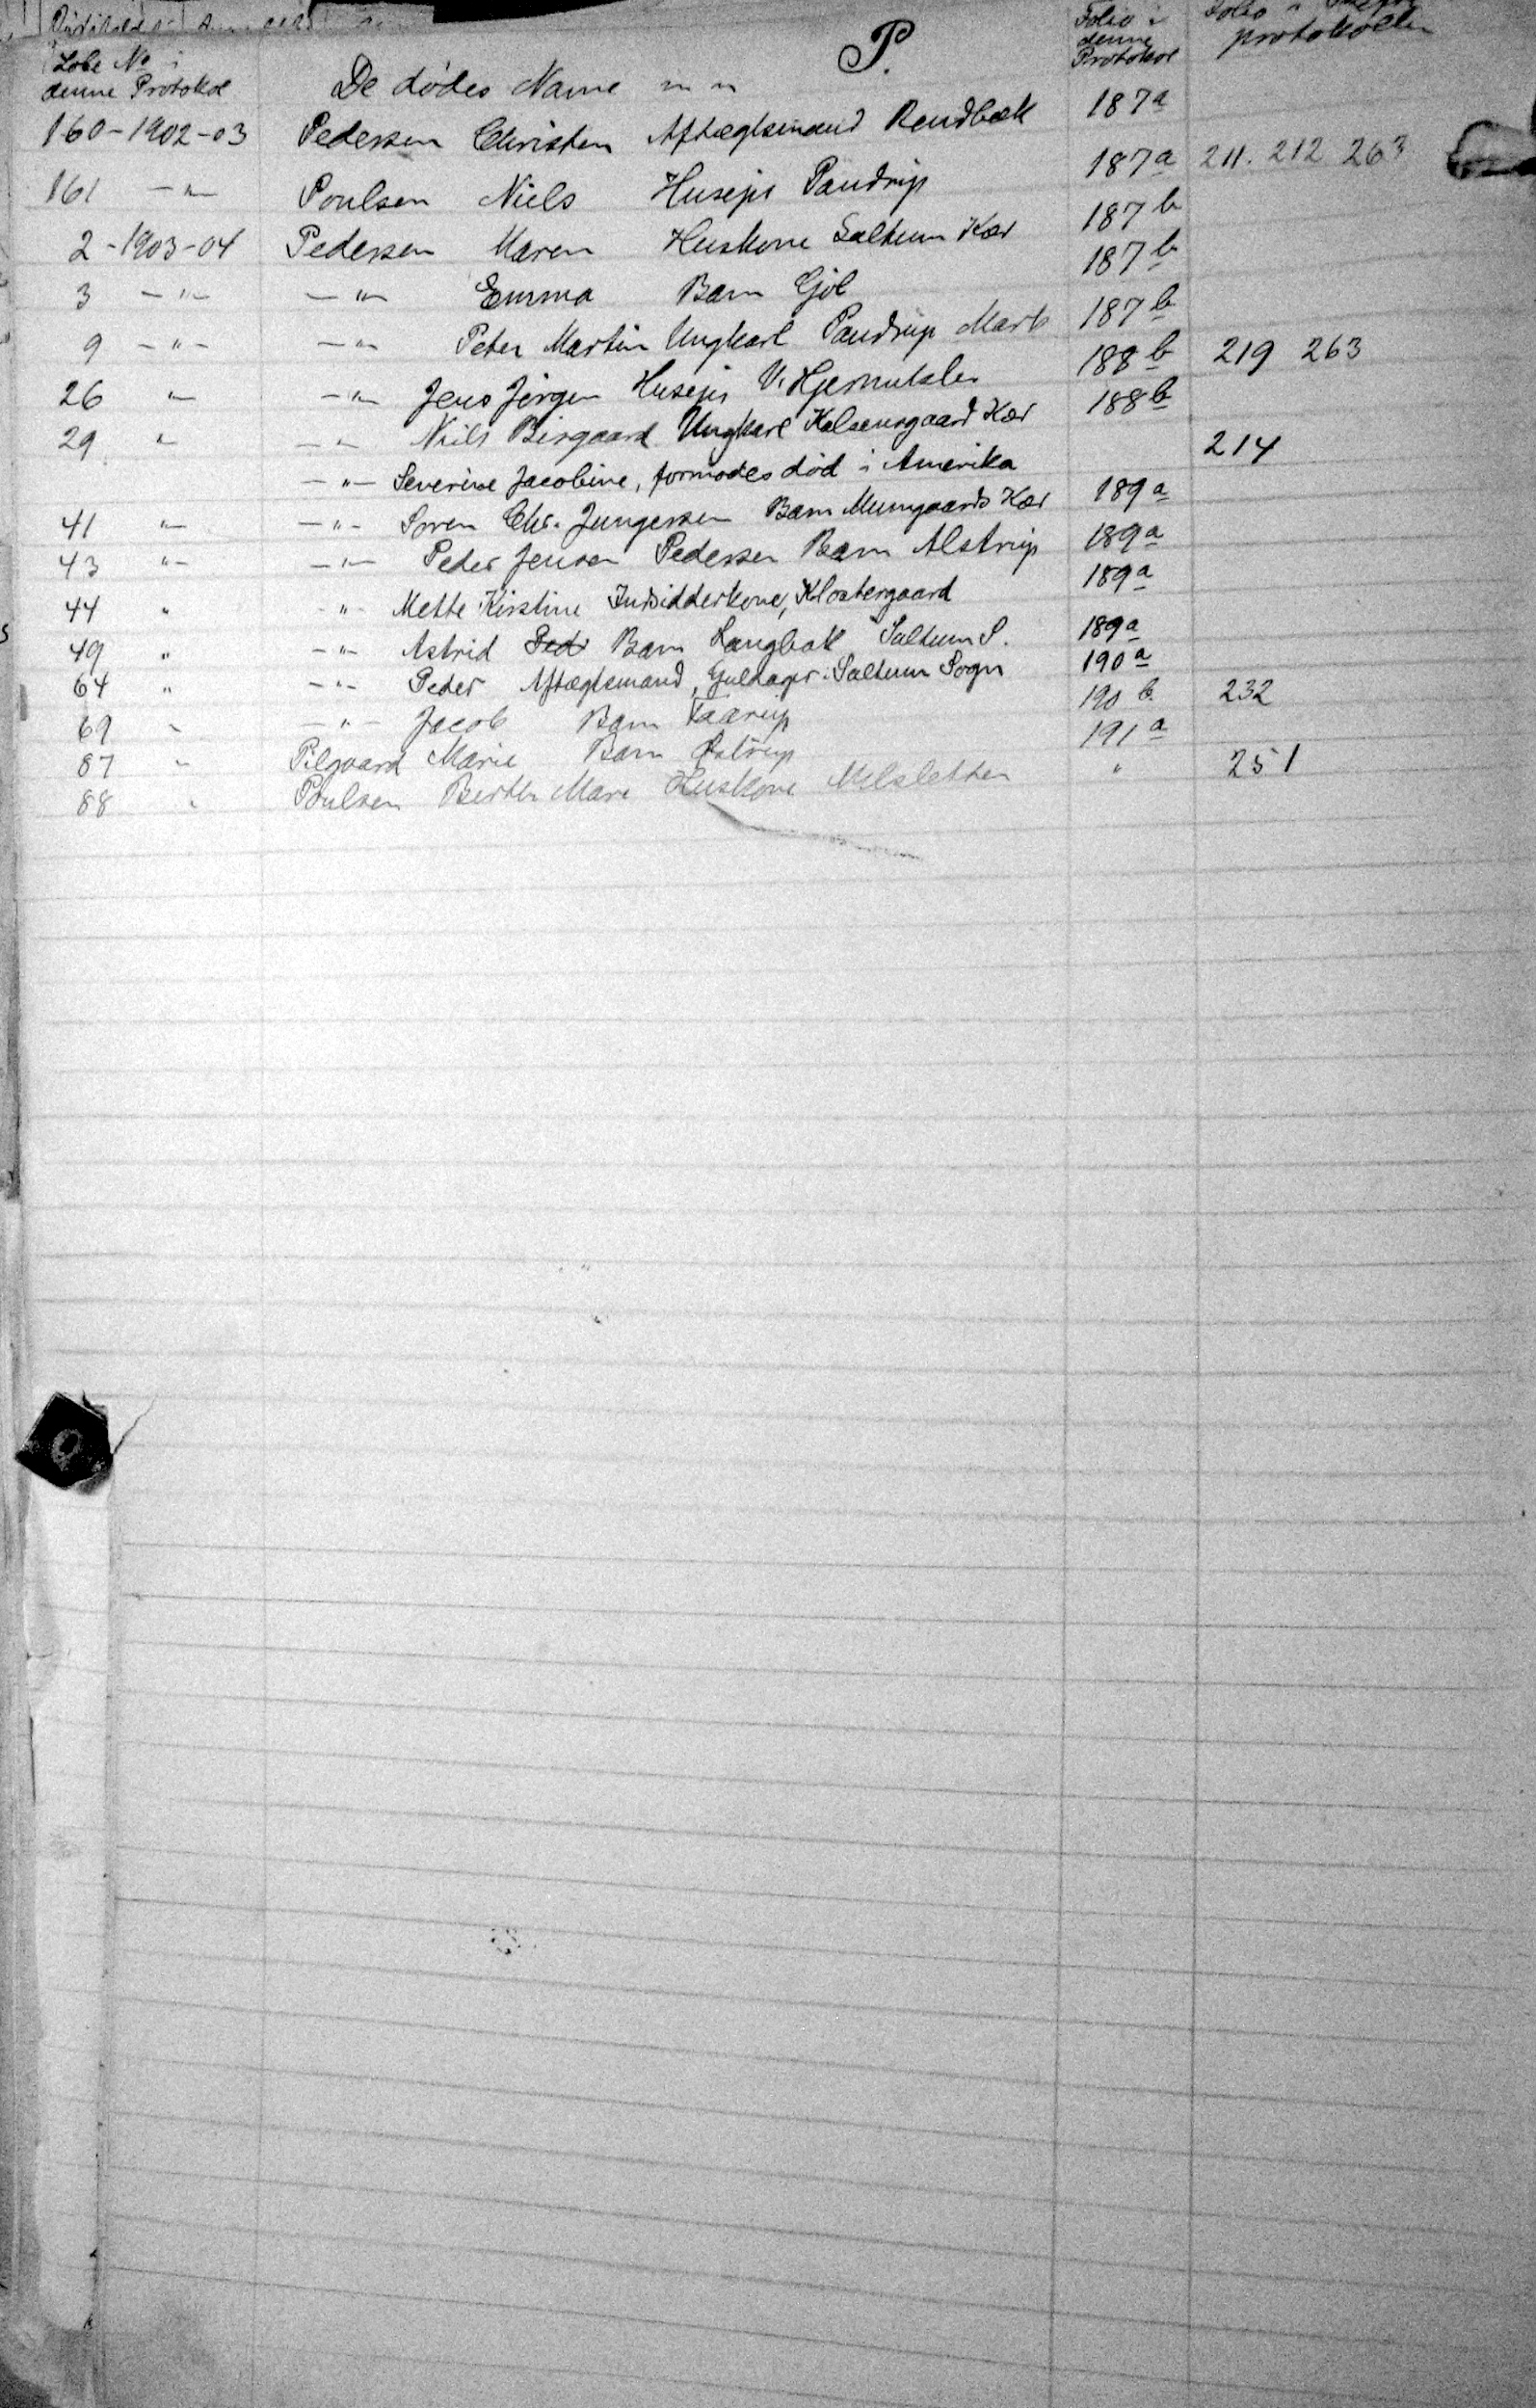 P.
Løbe No i denne Protokol
De dødes Navne m m
Folio i denne Protokol
Folio i protokollen
160-1902-03 Pedersen Christen Aftægtsmand Rendbæk 187a
161 -"- Poulsen Niels Husejer Pandrup 187a 211. 212 263
2-1903-04 Pedersen Maren Huskone Saltum Kær 187b
3 -"- -"- Emma Barn Gjøl 187b
9 -"- -"- Peter Martin Ungkarl Pandrup Mark 187b
26 " -"- Jens Jørgen Husejer V. Hjermitslev 188b 219 263
29 " -"- Niels Birgaard Ungkarl Kalsensgaard Kær 188b
-"- Severine Jacobine, formodes død i Amerika 214
41 " -"- Søren Chr. Jungersen Barn Munngaards Kær 189a
43 " -"- Peder Jensen Pedersen Barn Alstrup 189a
44 " -"- Mette Kirstine Indsidderkone, Klostergaard 189a
49 " -"- Astrid Ped Barn Langbæk Saltum S. 189a
64 " -"- Peder Aftægtsmand, Guldager Saltum Sogn 190a
69 " -"- Jacob Barn Faarup 190b 232
87 " Pilgaard Marie Barn Østrup 191a
88 " Poulsen Berthe Mare Huskone " 251